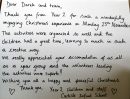 Dear Derek and team,
Thank you from Year 2 for such a wonderfully
engaging Christmas experience on Monday 27th November.
The activities were organised so well and the
children had a great time, learning so much in such
a creative way.
We really appreciated your accommodation of all
as a large group and the volunteers leading
the activities were superb!
Wishing you all a happy and peaceful Christmas.
Thank you
Year 2 children and staff
Infant School